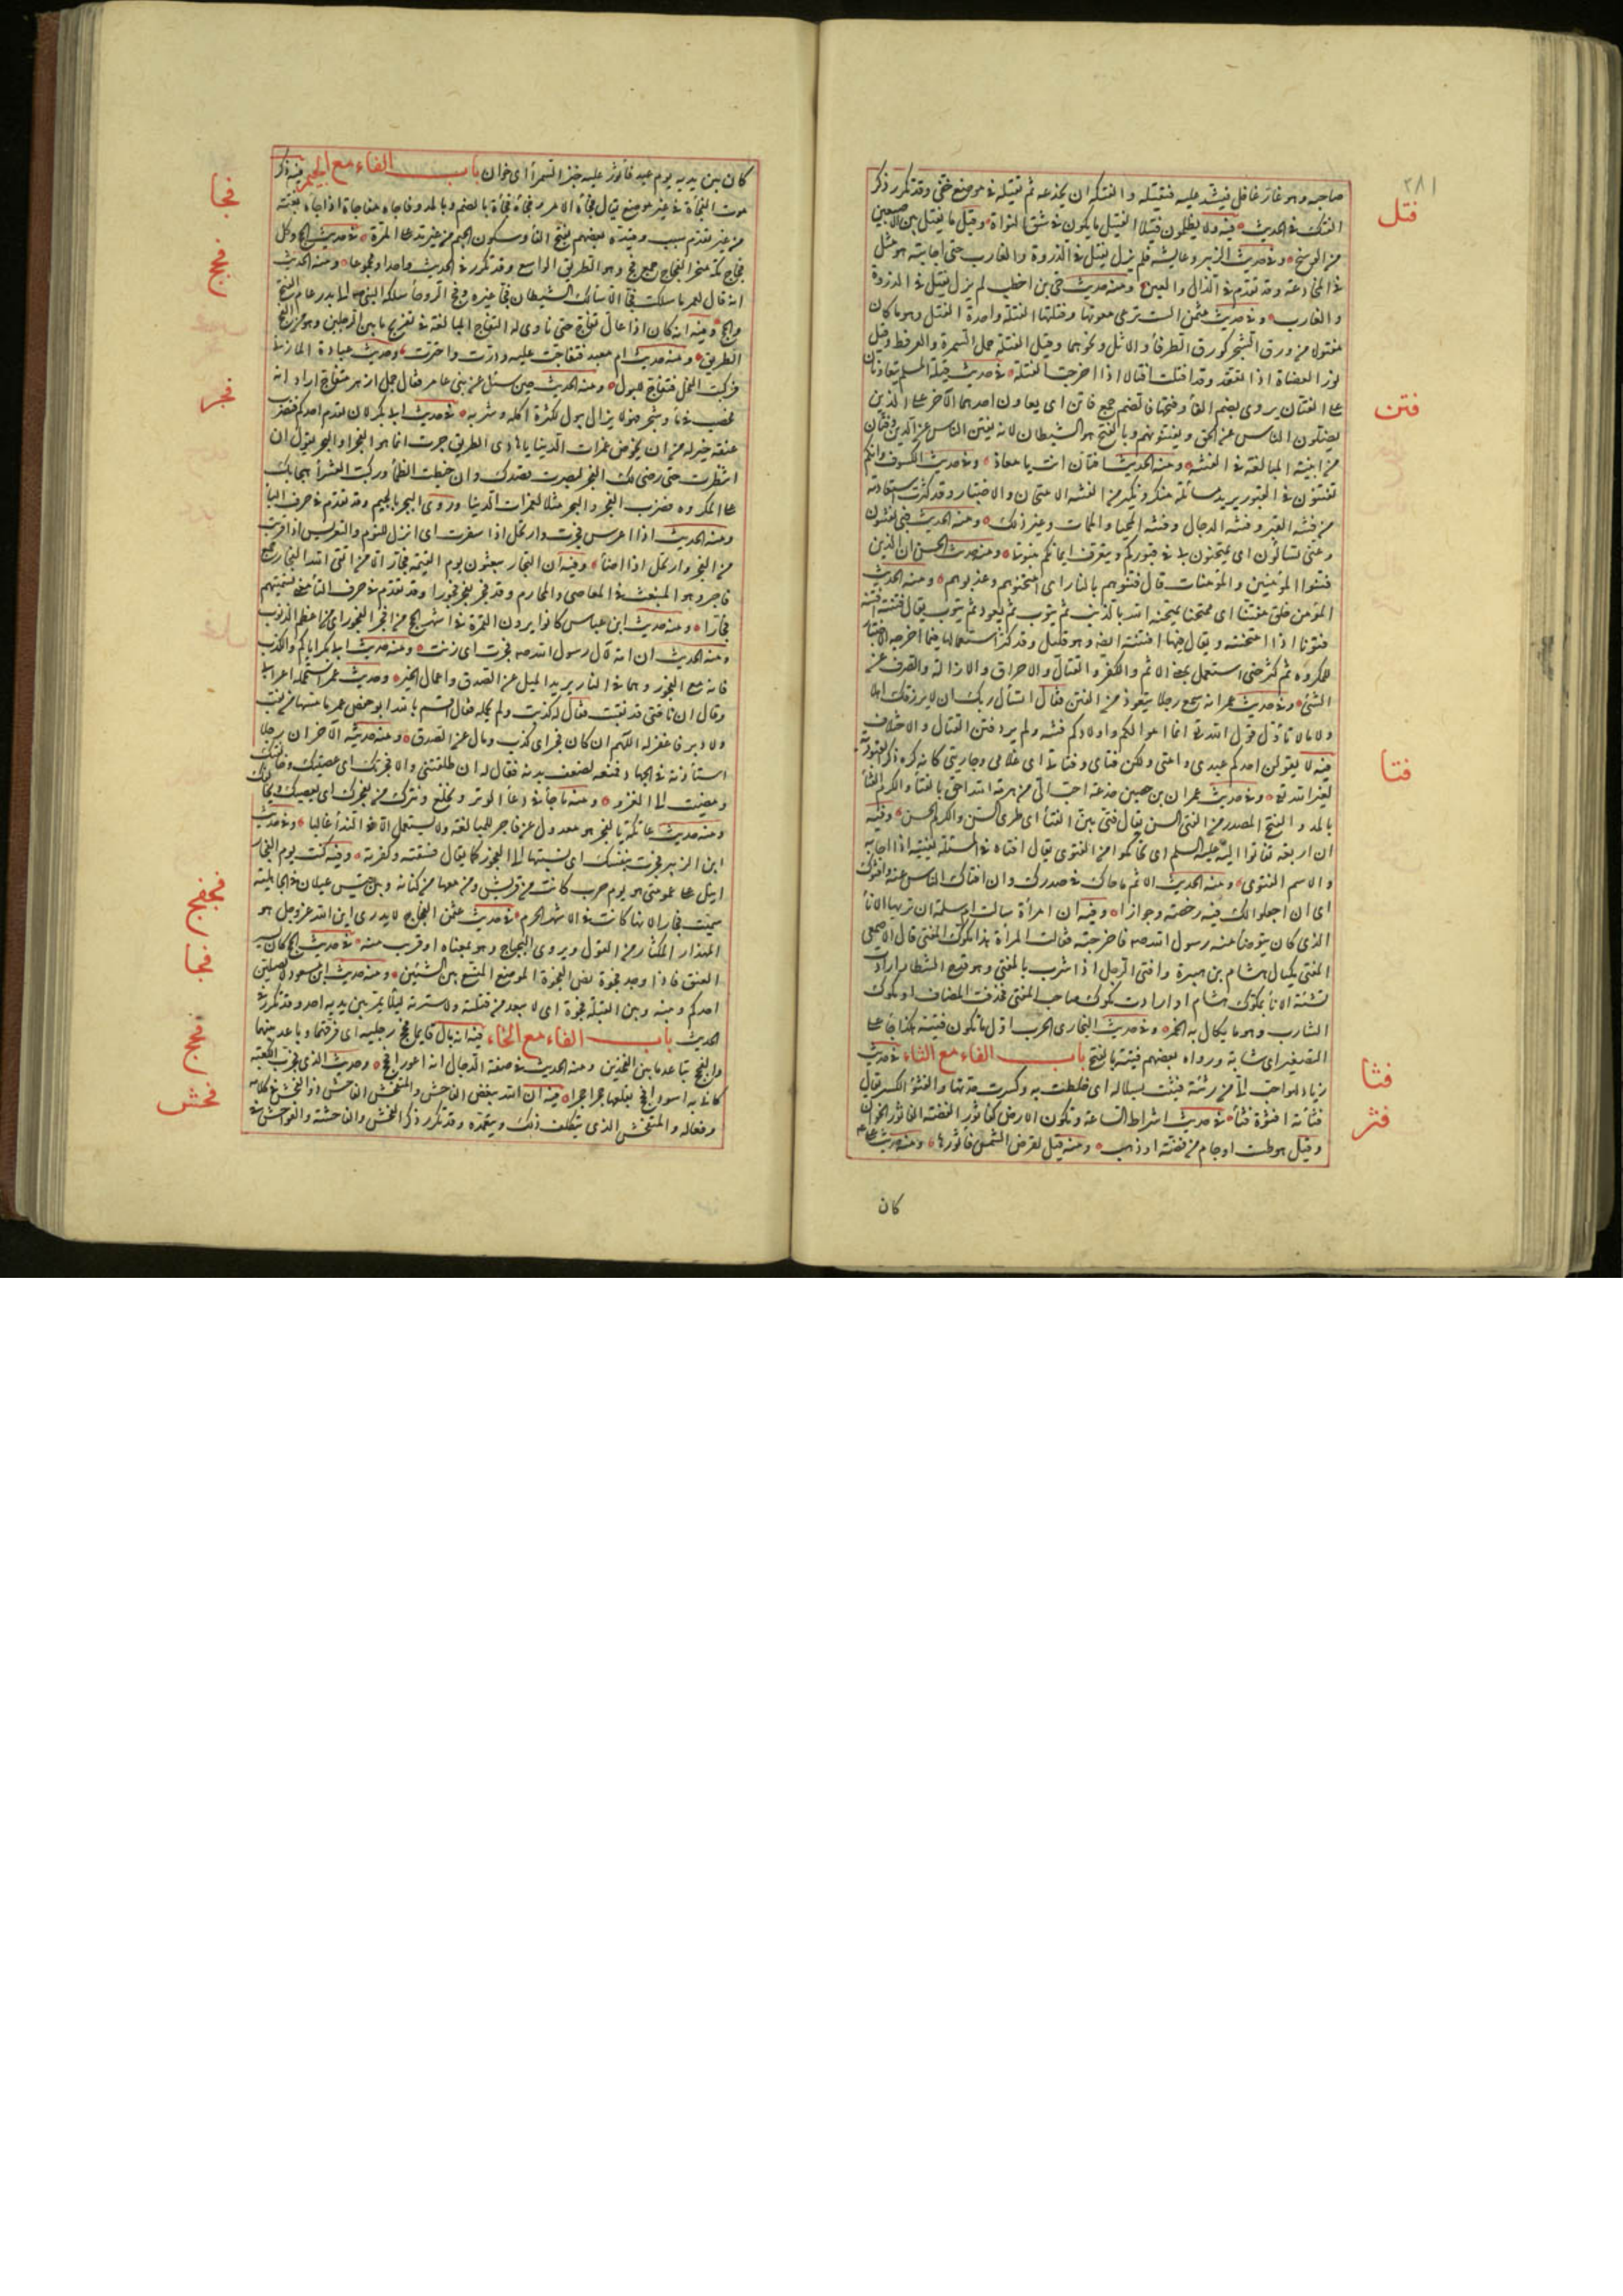 ٢٨١
صاحبه وهو غار غافل فيشد عليه فيقتله والفتك ان يخدعه ثم يقتله في موضع خفي وقد تكرر ذكر
فتل
الفتك في الحديث فيه ولا يظلمون فتيلا الفتيل ما يكون في شق النواة وقيل ما يفتل بين الاصبعين
من الوسخ وفي حديث الزبير وعايشه فلم يزل يفتل في الذروة والغارب حتى اجابته هو مثل
في المخادعة وقد تقدم في الذال والغين ومنه حديث حيي بن اخطب لم يزل يفتل في الذروة
والغارب وفي حديث عثمن الست ترعى معوتها وفتلتها الفتلة واحدة الفتل وهو ما كان
مفتولا من ورق الشجر كورق الطرفأ والاثل ونحوهما وقيل الفتلة حمل السمرة والعرفط وقيل
فتن
نور العضاة اذا انعقد وقد افتلت افتالا اذا اخرجت الفتلة في حديث قيلة المسلم يتعاونان
على الفتان يروى بضم الفأ وفتحها فالضم جمع فاتن اي يعاون احدهما الآخر على الذين
يضلون الناس عن الحق ويفتنونهم وبالفتح هو الشيطان لانه يفتن الناس عن الدين وفتان
من ابنية المبالغة في الفتنه ومنه الحديث افتان انت يا معاذ وفي حديث الكسوف وانكم
تفتنون في القبور يريد مسائلة منكر ونكير من الفتنه الامتحان والاختبار وقد كثرت استعاذته
من فتنه القبر وفتنه الدجال وفتنه المحيا والممات وغير ذلك ومنه الحديث فبي تفتنون
وعني تسألون اي تمتحنون بي في قبوركم ويتعرف ايمانكم بنبوتي ومنه حديث الحسن ان الذين
فتنوا المؤمنين والمؤمنات قال فتنوهم بالنار اي امتحنوهم وعذبوهم ومنه الحديث
المؤمن خلق مفتنا اي ممتحنا يمتحنه الله بالذنب ثم يتوب ثم يعود ثم يتوب يقال فتنته افتنه
فتونا اذا امتحنته ويقال فيها افتنته ايضا وهو قليل وقد كثر استعمالها فيما اخرجه الاختبار
للمكروه ثم كثر حتى استعمل بمعنى الاثم والكفر والقتال والاحراق والازالة والصرف عن
الشئ وفي حديث عمر انه سمع رجلا يتعوذ من الفتن فقال اتسأل ربك ان لا يرزقك اهلا
ولا مالا تأول قول الله تع انما اموالكم واولادكم فتنه ولم يرد فتن القتال والاختلاف
فتا
فيه لا يقولن احدكم عبدي وامتي ولكن فتاي وفتاتي اي غلامي وجاريتي كانه كره ذكر العبودية
لغير الله تع وفي حديث عمران بن حصين جذعة احب الي من هرمة الله احق بالفتأ والكرم الفتأ
بالمد والفتح المصدر من الفتى السن يقال فتى بين الفتأ اي طري السن والكرم الحسن وفيه
ان اربعة تفاتوا اليه عليه السلم اي تحاكموا من الفتوى يقال افتاه في المسئلة يفتيه اذا اجابه
والاسم الفتوى ومنه الحديث الاثم ما حاك في صدرك وان افتاك الناس عنه وافتوك
اي ان اجعلوا لك فيه رخصة وجوازا وفيه ان امرأة سالت ام سلمة ان تريها الانأ
الذي كان يتوضأ منه رسول الله صم فاخرجته فقالت المرأة هذا مكوك المفتي قال الاصمعي
المفتي مكيال هشام بن هبيرة وافتى الرجل اذا شرب بالمفتي وهو قدح الشطار ارادت
تشبيه الانأ بمكوك هشام او ارادت مكوك صاحب المفتي فحذفت المضاف او مكوك
الشارب وهو ما يكال به الخمر وفي حديث البخاري الحرب اول ما تكون فتية هكذا جأ على
فثا
التصغير اي شابة ورواه بعضهم فتية بالفتح باب الفاء مع الثاء في حديث
زياد لهو احب الي من رثئة فثئت بسلالة اي خلطت به وكسرت حدتها والفثو الكسر يقال
فثر
فثأته افثؤه فثأ في حديث اشراط الساعة وتكون الارض كفاثور الفضة الفاثور الخوان
وقيل هو طست او جام من فضة او ذهب ومنه قيل لقرص الشمس فاثورها ومنه حديث علي عم
كان
كان بين يديه يوم عيد فاثور عليه خبز السمرأ اي خوان باب الفاء مع الجيم فيه ذكر
فجا
موت الفجأة في غير موضع يقال فجأه الامر وفجئه فجأة بالضم وبالمد وفاجاه مفاجاة اذا جأه بغتة
من غير تقدم سبب وقيده بعضهم بفتح الفأ وسكون الجيم من غير مد على المرة في حديث الحج وكل
فجج
فجاج مكة منحر الفجاج جمع فج وهو الطريق الواسع وقد تكرر في الحديث واحدا ومجموعا ومنه الحديث
انه قال لعمر ما سلكت فجا الا سلك الشيطان فجا غيره وفج الروحأ سلكه النبي صم الى بدر عام الفتح
والحج وفيه انه كان اذا بال تفاج حتى ناوي له التفاج المبالغة في تفريج ما بين الرجلين وهو من الفج
الطريق ومنه حديث ام معبد فتفاجت عليه ودرت واجترت وحديث عبادة المازني
فركبت الفحل فتفاج للبول ومنه الحديث حين سئل عن بني عامر فقال جمل ازهر متفاج اراد انه
فجر
مخصب في مأ وشجر فهو لا يزال يبول لكثرة اكله وشربه في حديث ابي بكر لان يقدم احدكم فتضرب
عنقه خير له من ان يخوض غمرات الدنيا يا هادي الطريق جرت انما هو الفجر او البحر يقول ان
انتظرت حتى يضيء لك الفجر ابصرت قصدك وان خبطت الظلمأ وركبت العشوأ هجما بك
على المكروه فضرب الفجر والبحر مثلا لغمرات الدنيا وروى البجر بالجيم وقد تقدم في حرف البأ
ومنه الحديث اذا اعرس فجرت وارتحل اذا اسفرت اي انزل للنوم والتعريس اذا قربت
من الفجر وارتحل اذا اضأ وفيه ان التجار يبعثون يوم القيمة فجارا الا من اتقى الله الفجار جمع
فاجر وهو المنبعث في المعاصي والمحارم وقد فجر يفجر فجورا وقد تقدم في حرف التأ معنى تسميتهم
فجارا ومنه حديث ابن عباس كانوا يرون العمرة في اشهر الحج من افجر الفجور اي من اعظم الذنوب
ومنه الحديث ان امة لآل رسول الله صم فجرت اي زنت ومنه حديث ابي بكر اياكم والكذب
فانه مع الفجور وهما في النار يريد الميل عن الصدق واعمال الخير وحديث عمر استحمله اعرابي
وقال ان ناقتي قد نقبت فقال له كذبت ولم يحمله فقال اقسم بالله ابو حفص عمر ما مسها من نقب
ولا دبر فاغفر له اللهم ان كان فجر اي كذب ومال عن الصدق ومنه حديثه الآخر ان رجلا
استأذنه في الجهاد فمنعه لضعف بدنه فقال له ان اطلقتني والا فجرتك اي عصيتك وخالفتك
ومضيت الى الغزو ومنه ما جأ في دعأ الوتر ونخلع ونترك من يفجرك اي يعصيك ويخالفك
ومنه حديث عاتكة يا لفجر هو معدول عن فاجر للمبالغة ولا يستعمل الا في الندأ غالبا وفي حديث
ابن الزبير فجرت بنفسك اي نسبتها الى الفجور كما يقال فسقته وكفرته وفيه كنت يوم الفجار
انبل على عمومتي هو يوم حرب كانت من قريش ومن معها من كنانة وبين قيس عيلان في الجاهلية
فجفج
سميت فجارا لانها كانت في الاشهر الحرم في حديث عثمن ان هذا الفجفاج لا يدري اين الله عز وجل هو
المهذار المكثار من القول ويروى البجباج وهو بمعناه او قريب منه في حديث الحج كان يسير
فجا
العنق فاذا وجد فجوة نص الفجوة الموضع المتسع بين الشيئين ومنه حديث ابن مسعود لا يصلين
احدكم وبينه وبين القبلة فجوة اي لا يبعد من قبلته ولا سترته ليلا يمر بين يديه احد وقد تكرر في
فحج
الحديث باب الفاء مع الحاء فيه انه بال قايما ففحج رجليه اي فرقهما وباعد بينهما
والفحج تباعد ما بين الفخذين ومنه الحديث في صفة الدجال انه اعور افحج وحديث الذي يخرب الكعبة
فحش
كاني به اسود افحج يقلعها حجرا حجرا فيه ان الله يبغض الفاحش والمتفحش الفاحش ذو الفحش في كلامه
وفعاله والمتفحش الذي يتكلف ذلك ويتعمده وقد تكرر ذكر الفحش والفاحشة والفواحش في